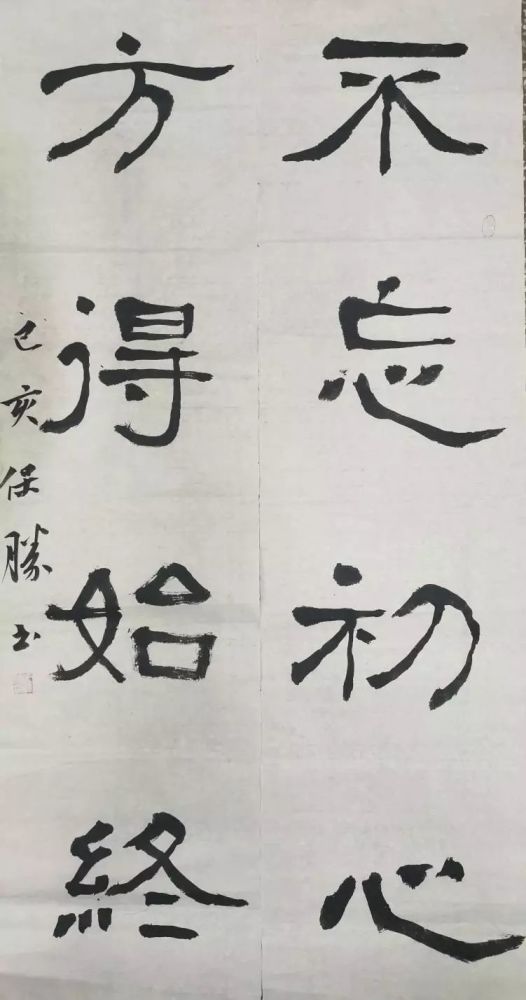 不忘初心
方得始終
己亥保勝书